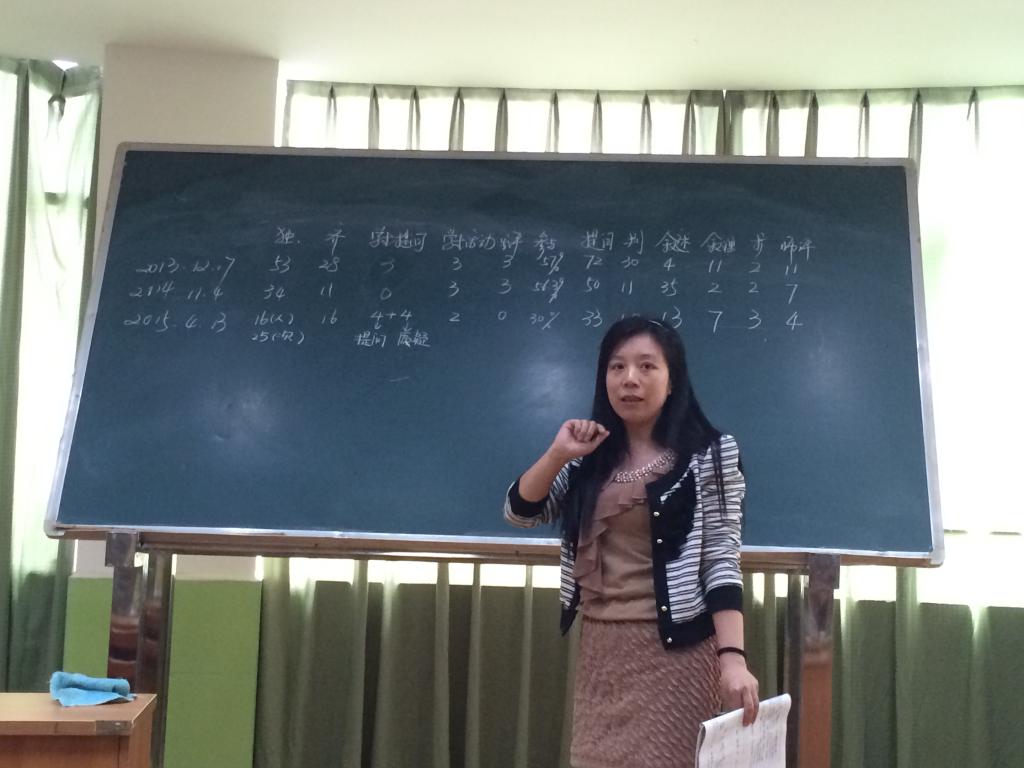 独. 齐 学生提问 学生活动 学评 参与 提问 判 余迷 余理 步 师评
2013.12.7 53 28 3 3 3 57% 72 30 4 11 2 11
2014.11.4 34 11 0 3 3 50 11 35 2 2 7
2015.4.13 16(人) 16 4+4 2 0 30% 33 13 7 3 4
25(次) 提问 质疑